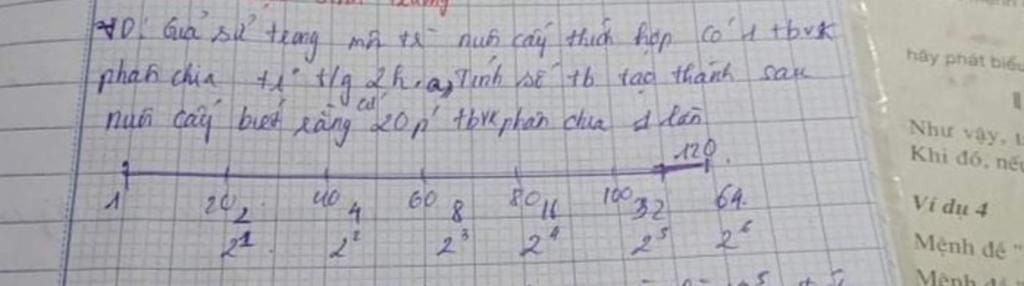 VD: Giả sử trong mt ts nuôi cấy thích hợp có 1 tbvk
phân chia t/g 2h. a, Tính số tb tạo thành sau
nuôi cấy biết rằng cứ 20p' tbvk phân chia 1 lần
120
1 20 2 40 4 60 8 80 16 100 32 64.
2¹ 2² 2³ 2⁴ 2⁵ 2⁶
hãy phát biểu
Như vậy,
Khi đó, nếu
Ví dụ 4
Mệnh đề "
Mệnh đề